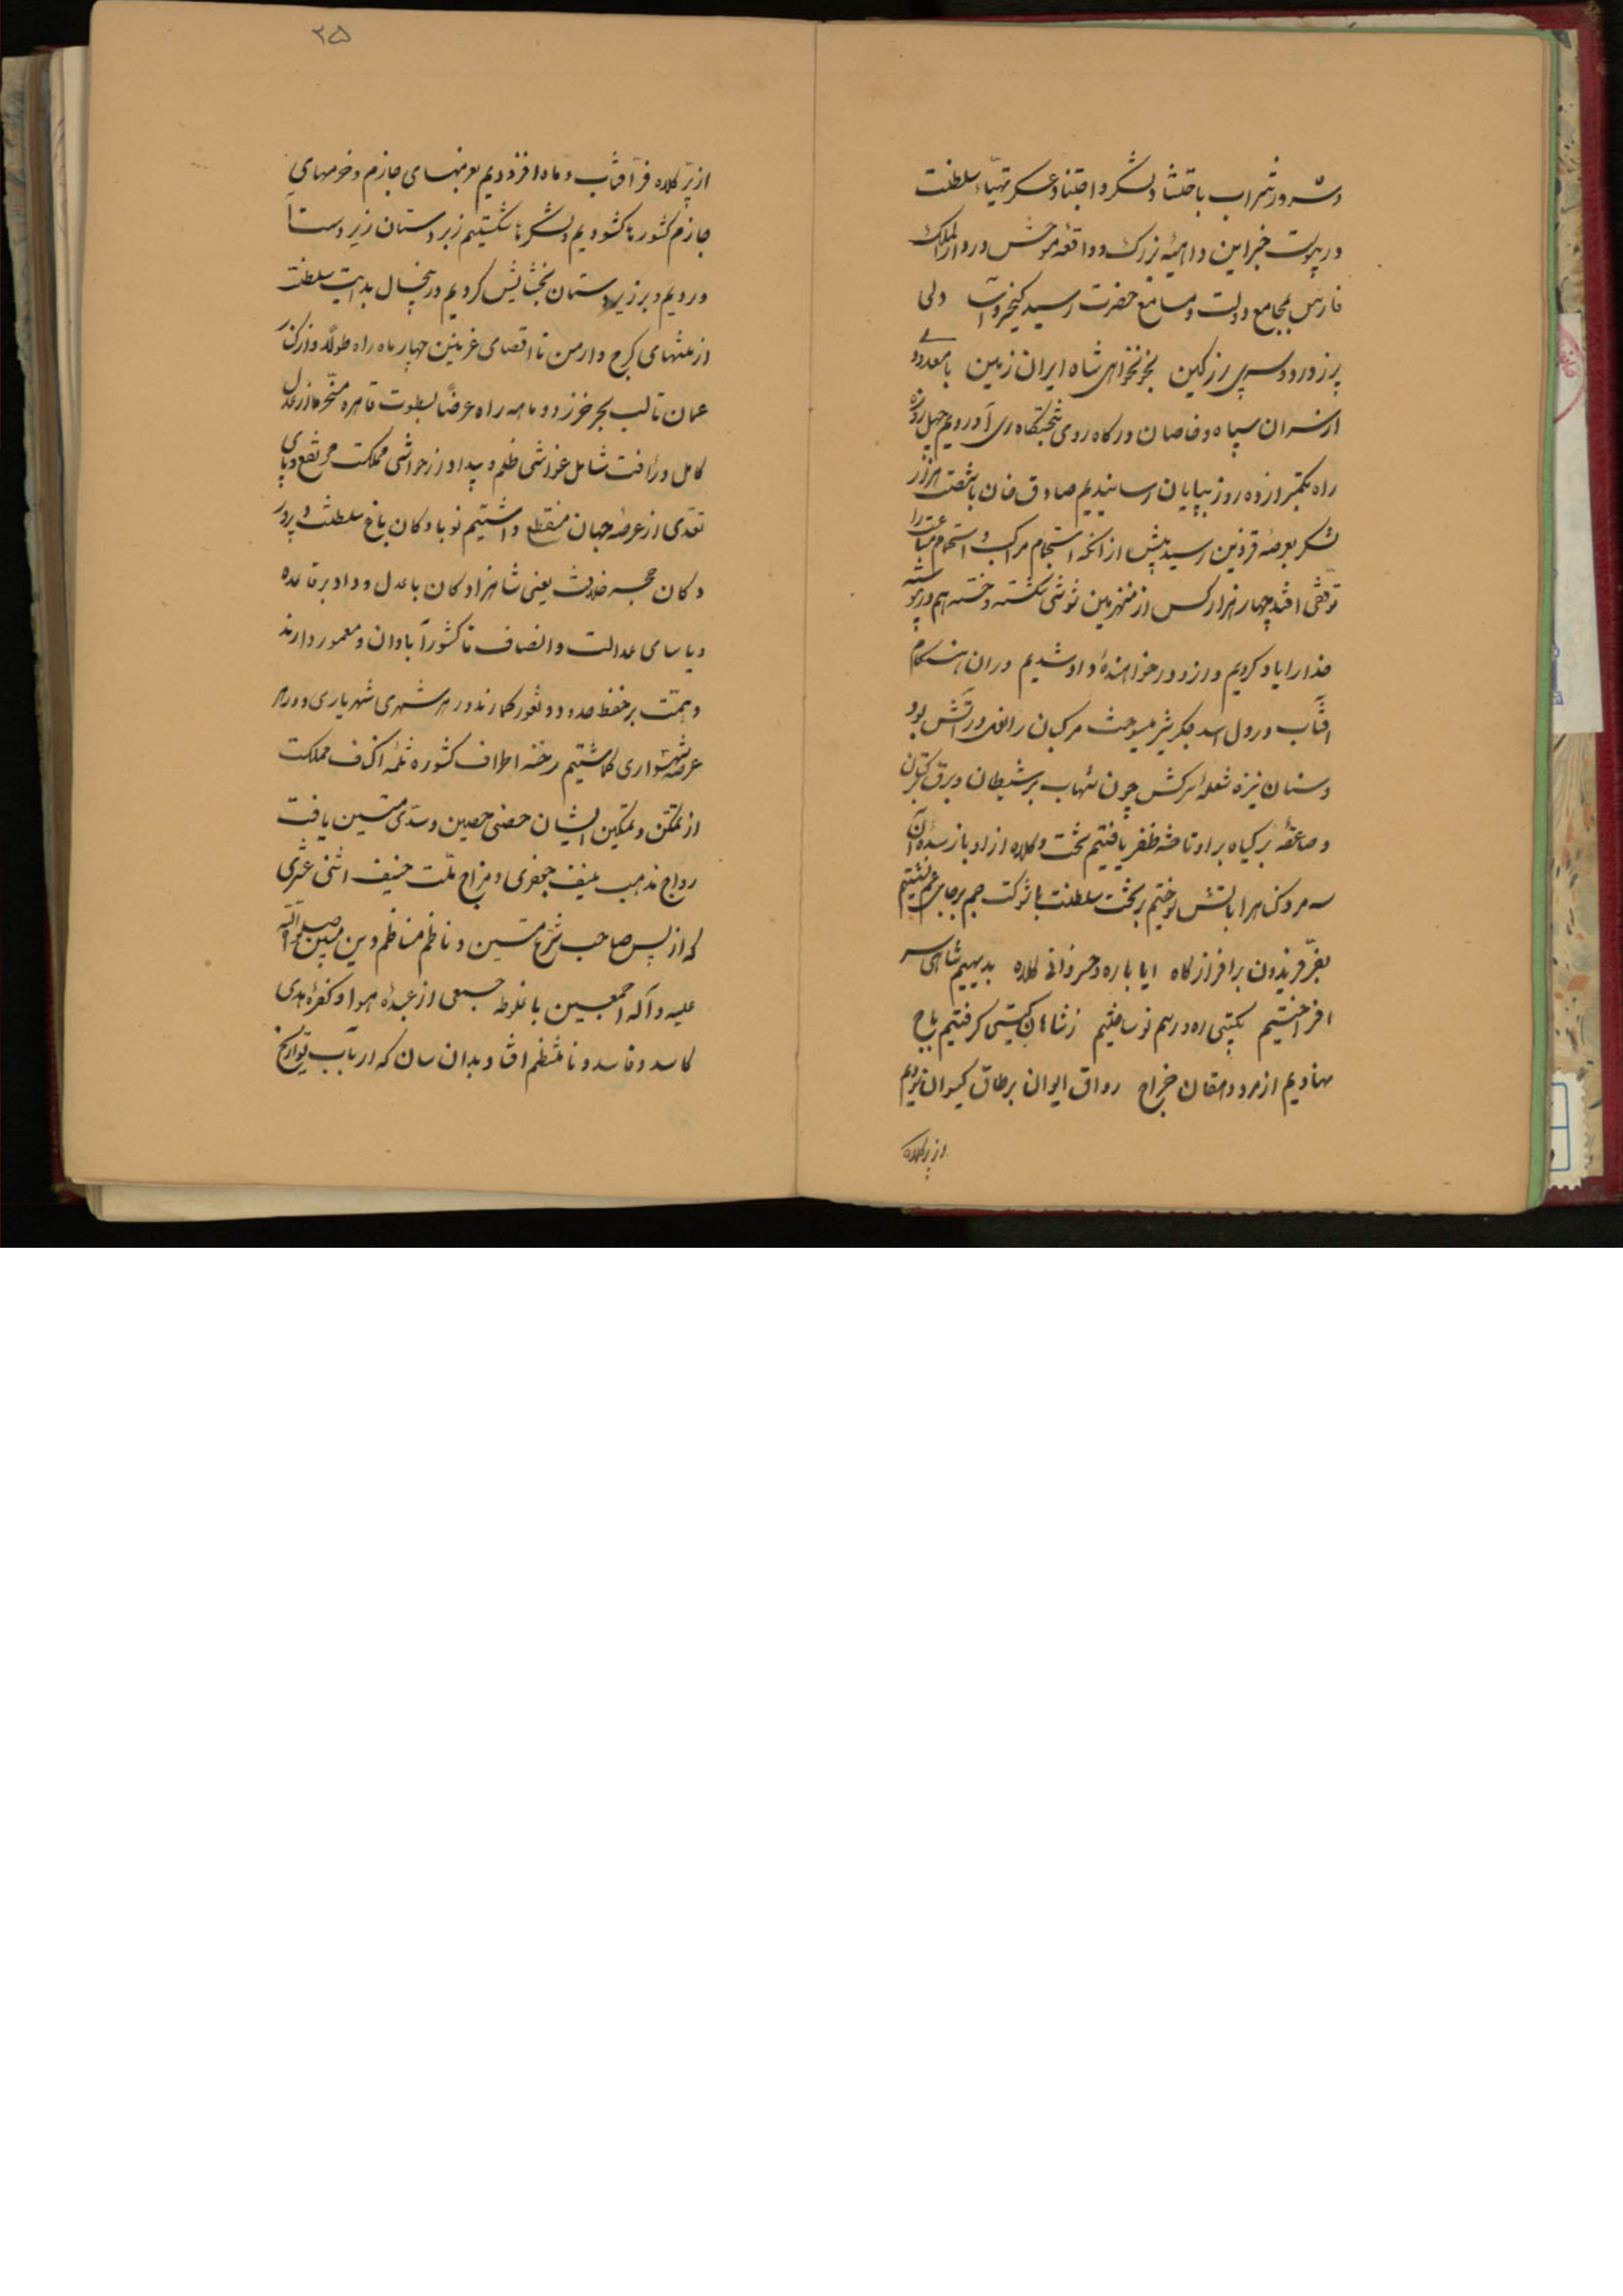 و شر و زشراب باحتشاد لشکر و اجتناد عسکر تهیّاء سلطنت
در پیوست خبر این داهیهٔ بزرک و واقعه موحش در دارالملک
فارس بمجامع دولت و مسامع حضرت رسید کیخسروآسا ولی
پر ز درد و سری پر ز کین بخونخواهی شاه ایران زمین با معدودی
از سران سپاه و خاصان درکاه روی بتختکاه ری آوردیم چهل روزه
راه بکمتر از ده روز بپایان رسانیدیم صادق خان با شصت هزار
لشکر بعرصهٔ قزوین رسید پیش از آنکه استجمام مراکب و استحمام متاعب را
توقفی افتد چهار هزار کس از منهزمین شوشی شکسته و خسته بهم در پیوسته
خدا را یاد کردیم و از و در خواهندهٔ داد شدیم در ان هنکام
افتاب در دل اسد جکر شیر میسوخت مرکبان را نعل در آتش بود
و سنان نیزه شعلهٔ سرکش چون شهاب بر شیطان و برق بر کتان
و صاعقه بر کیاه براو تاخته ظفر یافتیم تخت و کلاه از او باز ستده آن
سه مردک را باتش سوختیم بر تخت سلطنت با شوکت جم بر جای عم نشستیم
بفرّ فریدون بر افراز کاه ابا یاره و خسروانی کلاه بدیهیم شاهی سر
افراختیم بکیتی ره و رسم نو ساختیم ز شاهان کیتی کرفتیم باج
نهادیم از مرد دهقان خراج رواق ایوان بر طاق کیوان بردیم
از پر کلاه
۲۵
از پرّ کلاه فرّ آفتاب و ماه افزودیم بعزمهای جازم و خرمهای
جازم کشورها کشودیم و لشکرها شکستیم زبر دستان زیر دست
آوردیم و بر زیردستان بخشایش کردیم در پنجسال بدایت سلطنت
از منتهای کرج و ارمن تا اقصای غزنین چهار ماه راه طولاً و از کنار
عمان تا لب بحر خزر دو ماهه راه عرضاً بسطوت قاهره مسخّر ما از عدل
کامل و رأفت شامل غواشی ظلم و بیداد از حواشی مملکت مرتفع و پای
تعدّی از عرصهٔ جهان منقطع داشتیم نوباوکان باغ سلطنت و پرور
دکان حجر خلافت یعنی شاهزادکان با عدل و داد بر قاعده
و یاسای عدالت و انصاف تا کشور آبادان و معمور دارند
و همّت بر حفظ حدود و ثغور کمارند در هر شهری شهریاری و در هر
عرصه شهسواری کماشتیم رخنه اطراف کشور و ثلمه اکناف مملکت
از تمکّن و تمکین ایشان حصنی حصین و سدّی متین یافت
رواج مذهب منیف جعفری و مزاج ملّت حنیف اثنی عشری
که از پس صاحب شرع متین و ناظم مناظم دین مبین صلوات الله
علیه و آله اجمعین باغلوطه جمعی از عبدهٔ هوا و کفرهٔ هدی
کاسد و فاسد و نامنتظم افتاد بدان سان که ارباب تواریخ